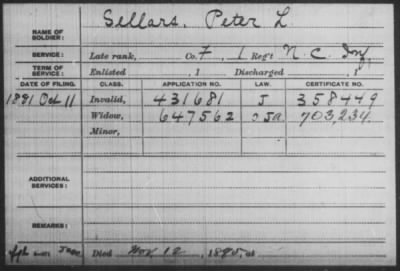 Sellars, Peter L
NAME OF SOLDIER:
SERVICE: Late rank, Co. F, 1 Reg't N.C. Inf
TERM OF SERVICE: Enlisted , 1 Discharged , 1
DATE OF FILING. CLASS. APPLICATION NO. LAW. CERTIFICATE NO.
1881 Oct 11 Invalid, 431681 J 358449
Widow, 647562 703,234.
Minor,
ADDITIONAL SERVICES:
REMARKS:
Died Nov 12, 1895, at